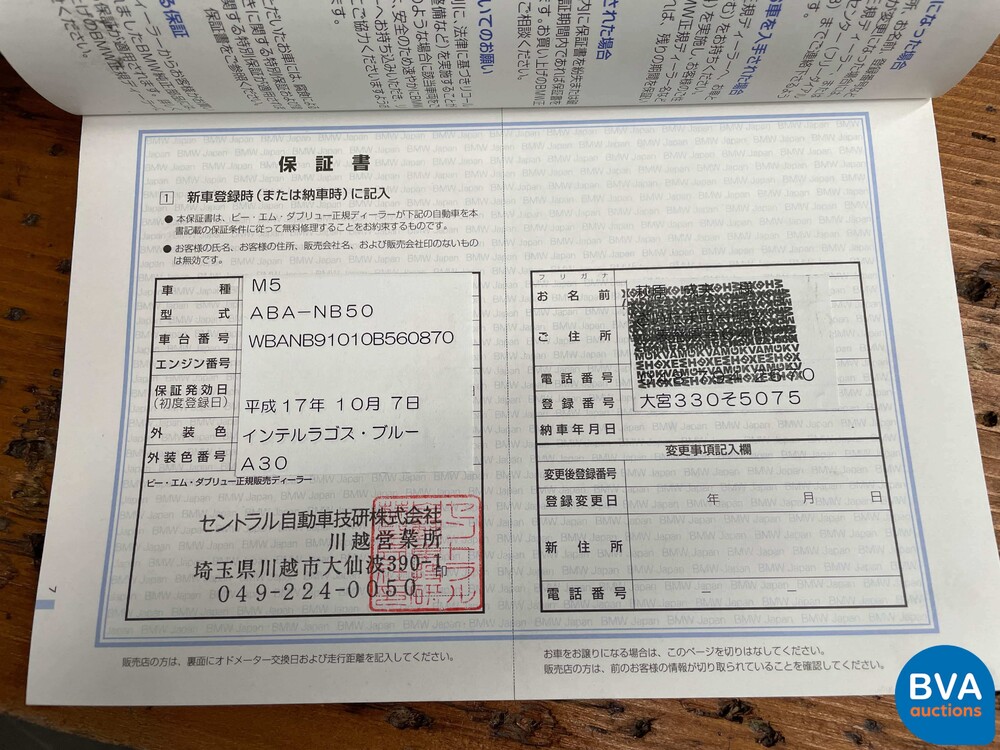 になった場合
お車を入手された場合
された場合
ついてのお願い
る保証
保証書
1 新車登録時(または納車時)に記入
●本保証書は、ビー・エム・ダブリュー正規ディーラーが下記の自動車を本
書記載の保証条件に従って無料修理することをお約束するものです。
●お客様の氏名、お客様の住所、販売会社名、および販売会社印のないもの
は無効です。
車種 M5
型式 ABA-NB50
車台番号 WBANB91010B560870
エンジン番号
保証発効日
(初度登録日) 平成17年10月7日
外装色 インテルラゴス・ブルー
外装色番号 A30
ビー・エム・ダブリュー正規販売ディーラー
セントラル自動車技研株式会社
川越営業所
埼玉県川越市大仙波390-1
印
049-224-0050
フリガナ
お名前
ご住所
電話番号
登録番号 大宮330そ5075
納車年月日
変更事項記入欄
変更後登録番号
登録変更日 年 月 日
新住所
電話番号 － －
7
販売店の方は、裏面にオドメーター交換日および走行距離を記入してください。
お車をお譲りになる場合は、このページを切りはなしてください。
販売店の方は、前のお客様の情報が切り取られていることを確認してください。
BVA
auctions